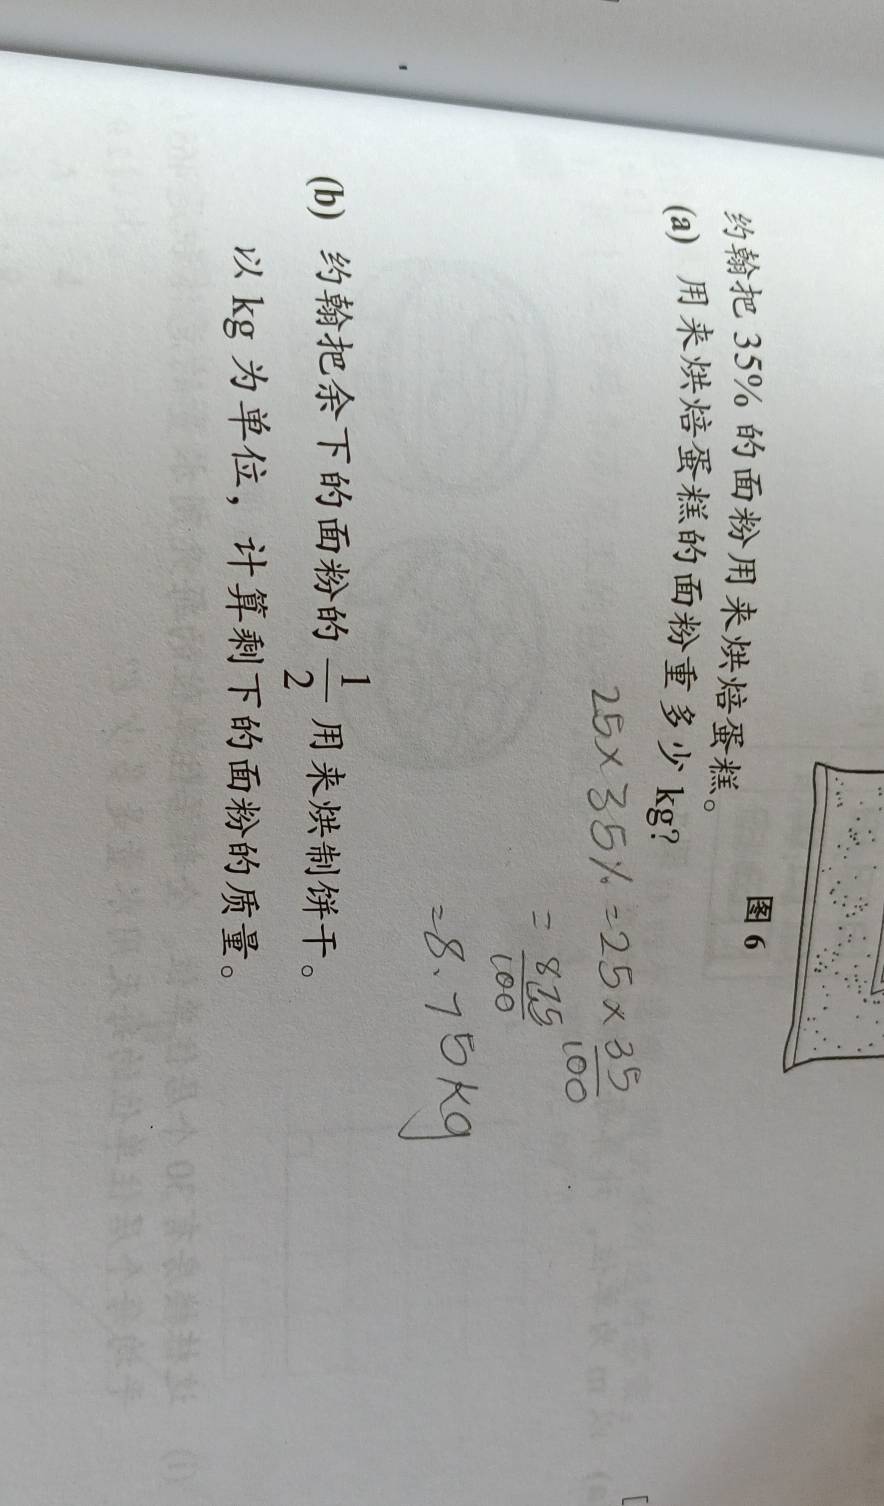 图 6
约翰把 35% 的面粉用来烘焙蛋糕。
(a) 用来烘焙蛋糕的面粉重多少 kg?
25×35%=25×35/100
=875/100
=8.75kg
(b) 约翰把余下的面粉的 1/2 用来烘制饼干。
以 kg 为单位，计算剩下的面粉的质量。